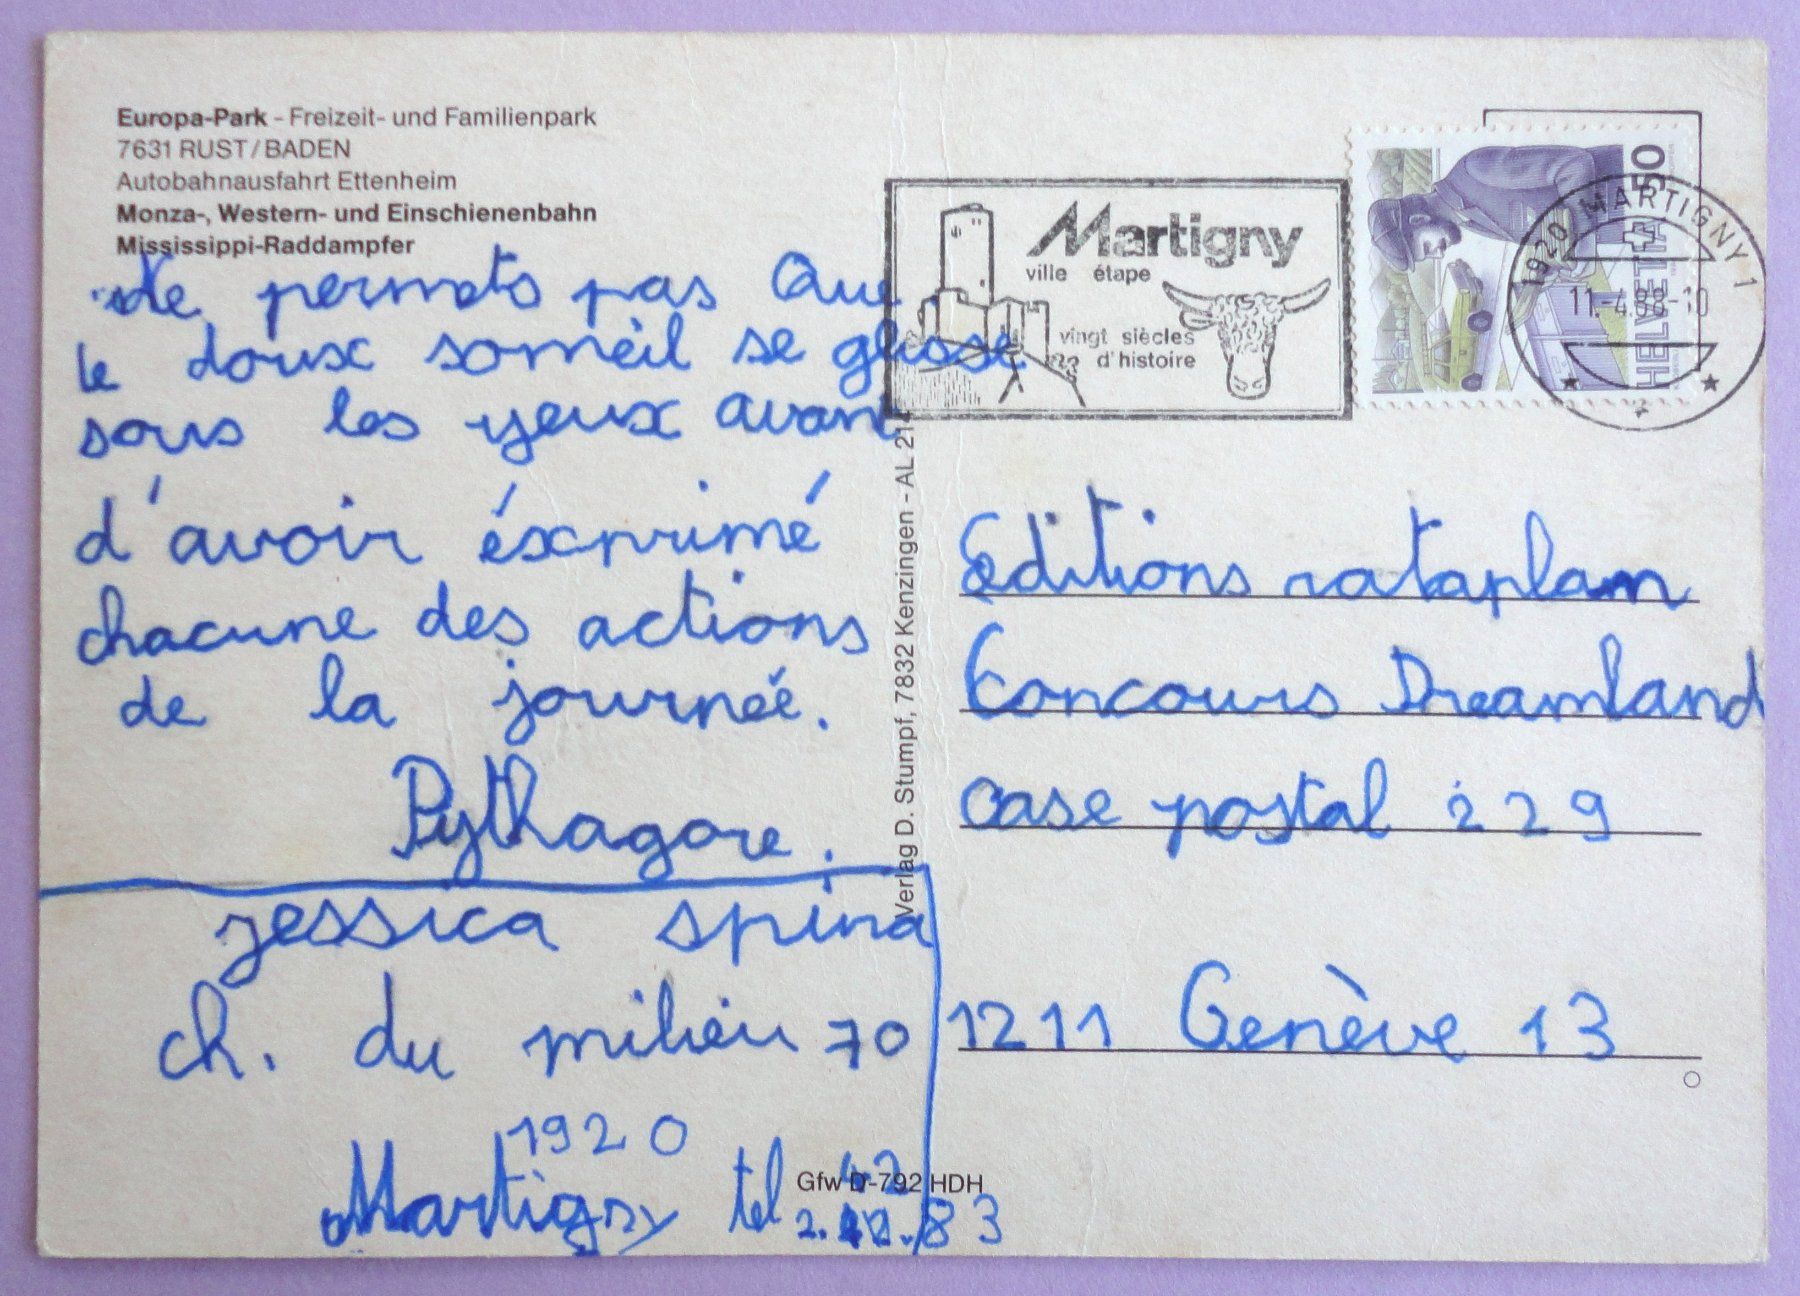 Europa-Park - Freizeit- und Familienpark
7631 RUST/BADEN
Autobahnausfahrt Ettenheim
Monza-, Western- und Einschienenbahn
Mississippi-Raddampfer
Ne permets pas Que
le doux someil se glisse
sous les yeux avant
d'avoir éxprimé
chacune des actions
de la journée.
Pythagore.
jessica spina
ch. du milieu 70
1920
Martigny tel 2.
83
Verlag D. Stumpf, 7832 Kenzingen - AL 214
Gfw D-792 HDH
Martigny
ville étape
vingt siècles
d'histoire
50
HELVETIA
1920 MARTIGNY 1
11.-4.88-10
Editions rataplam
Concours Dreamland
case postal 229
1211 Genève 13